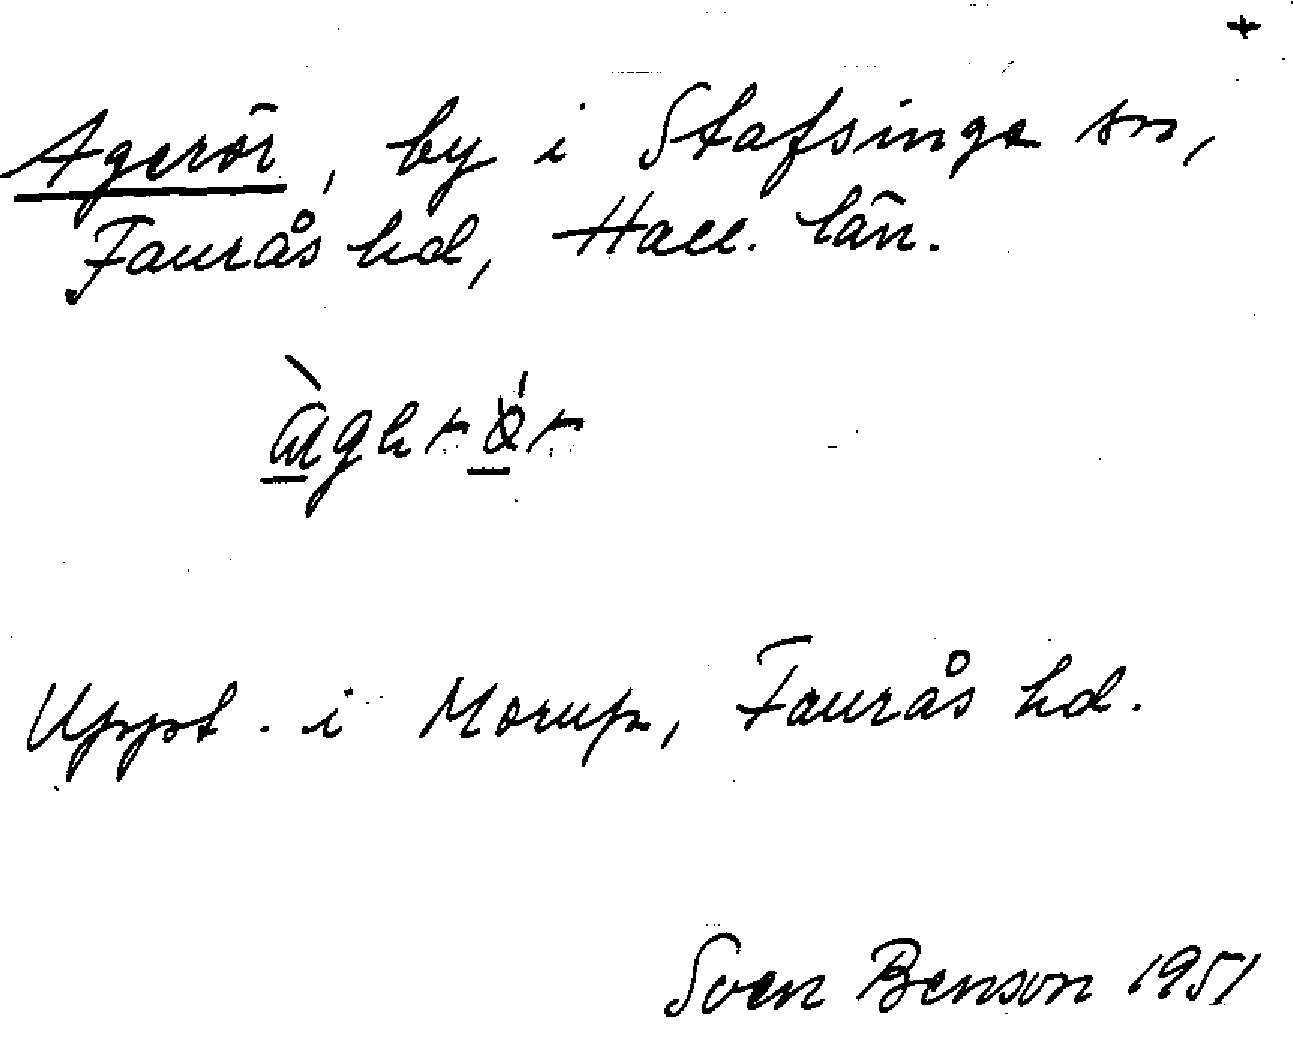 +
Agerör, by i Stafsinge sn,
Faurås hd, Hall. län.
Uppt. i Morup, Faurås hd.
Sven Benson 1951